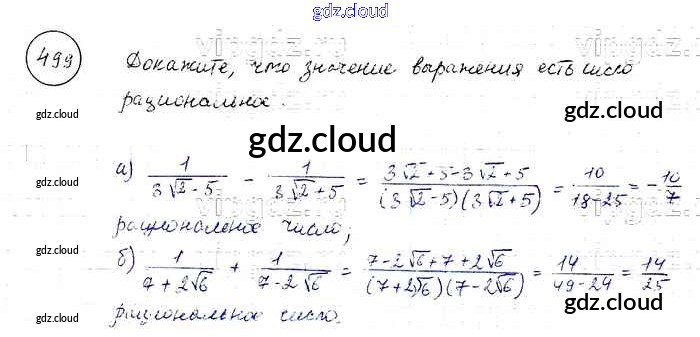 gdz.cloud
499
Докажите, что значение выражения есть число
рациональное.
gdz.cloud
gdz.cloud
gdz.cloud
gdz.cloud
а) 1/(3√2 - 5) - 1/(3√2 + 5) = (3√2 + 5 - 3√2 + 5)/((3√2 - 5)(3√2 + 5)) = 10/(18 - 25) = -10/7
gdz.cloud
gdz.cloud
рациональное число;
б) 1/(7 + 2√6) + 1/(7 - 2√6) = (7 - 2√6 + 7 + 2√6)/((7 + 2√6)(7 - 2√6)) = 14/(49 - 24) = 14/25
gdz.cloud
gdz.cloud
рациональное число.
gdz.cloud
gdz.cloud
gdz.cloud